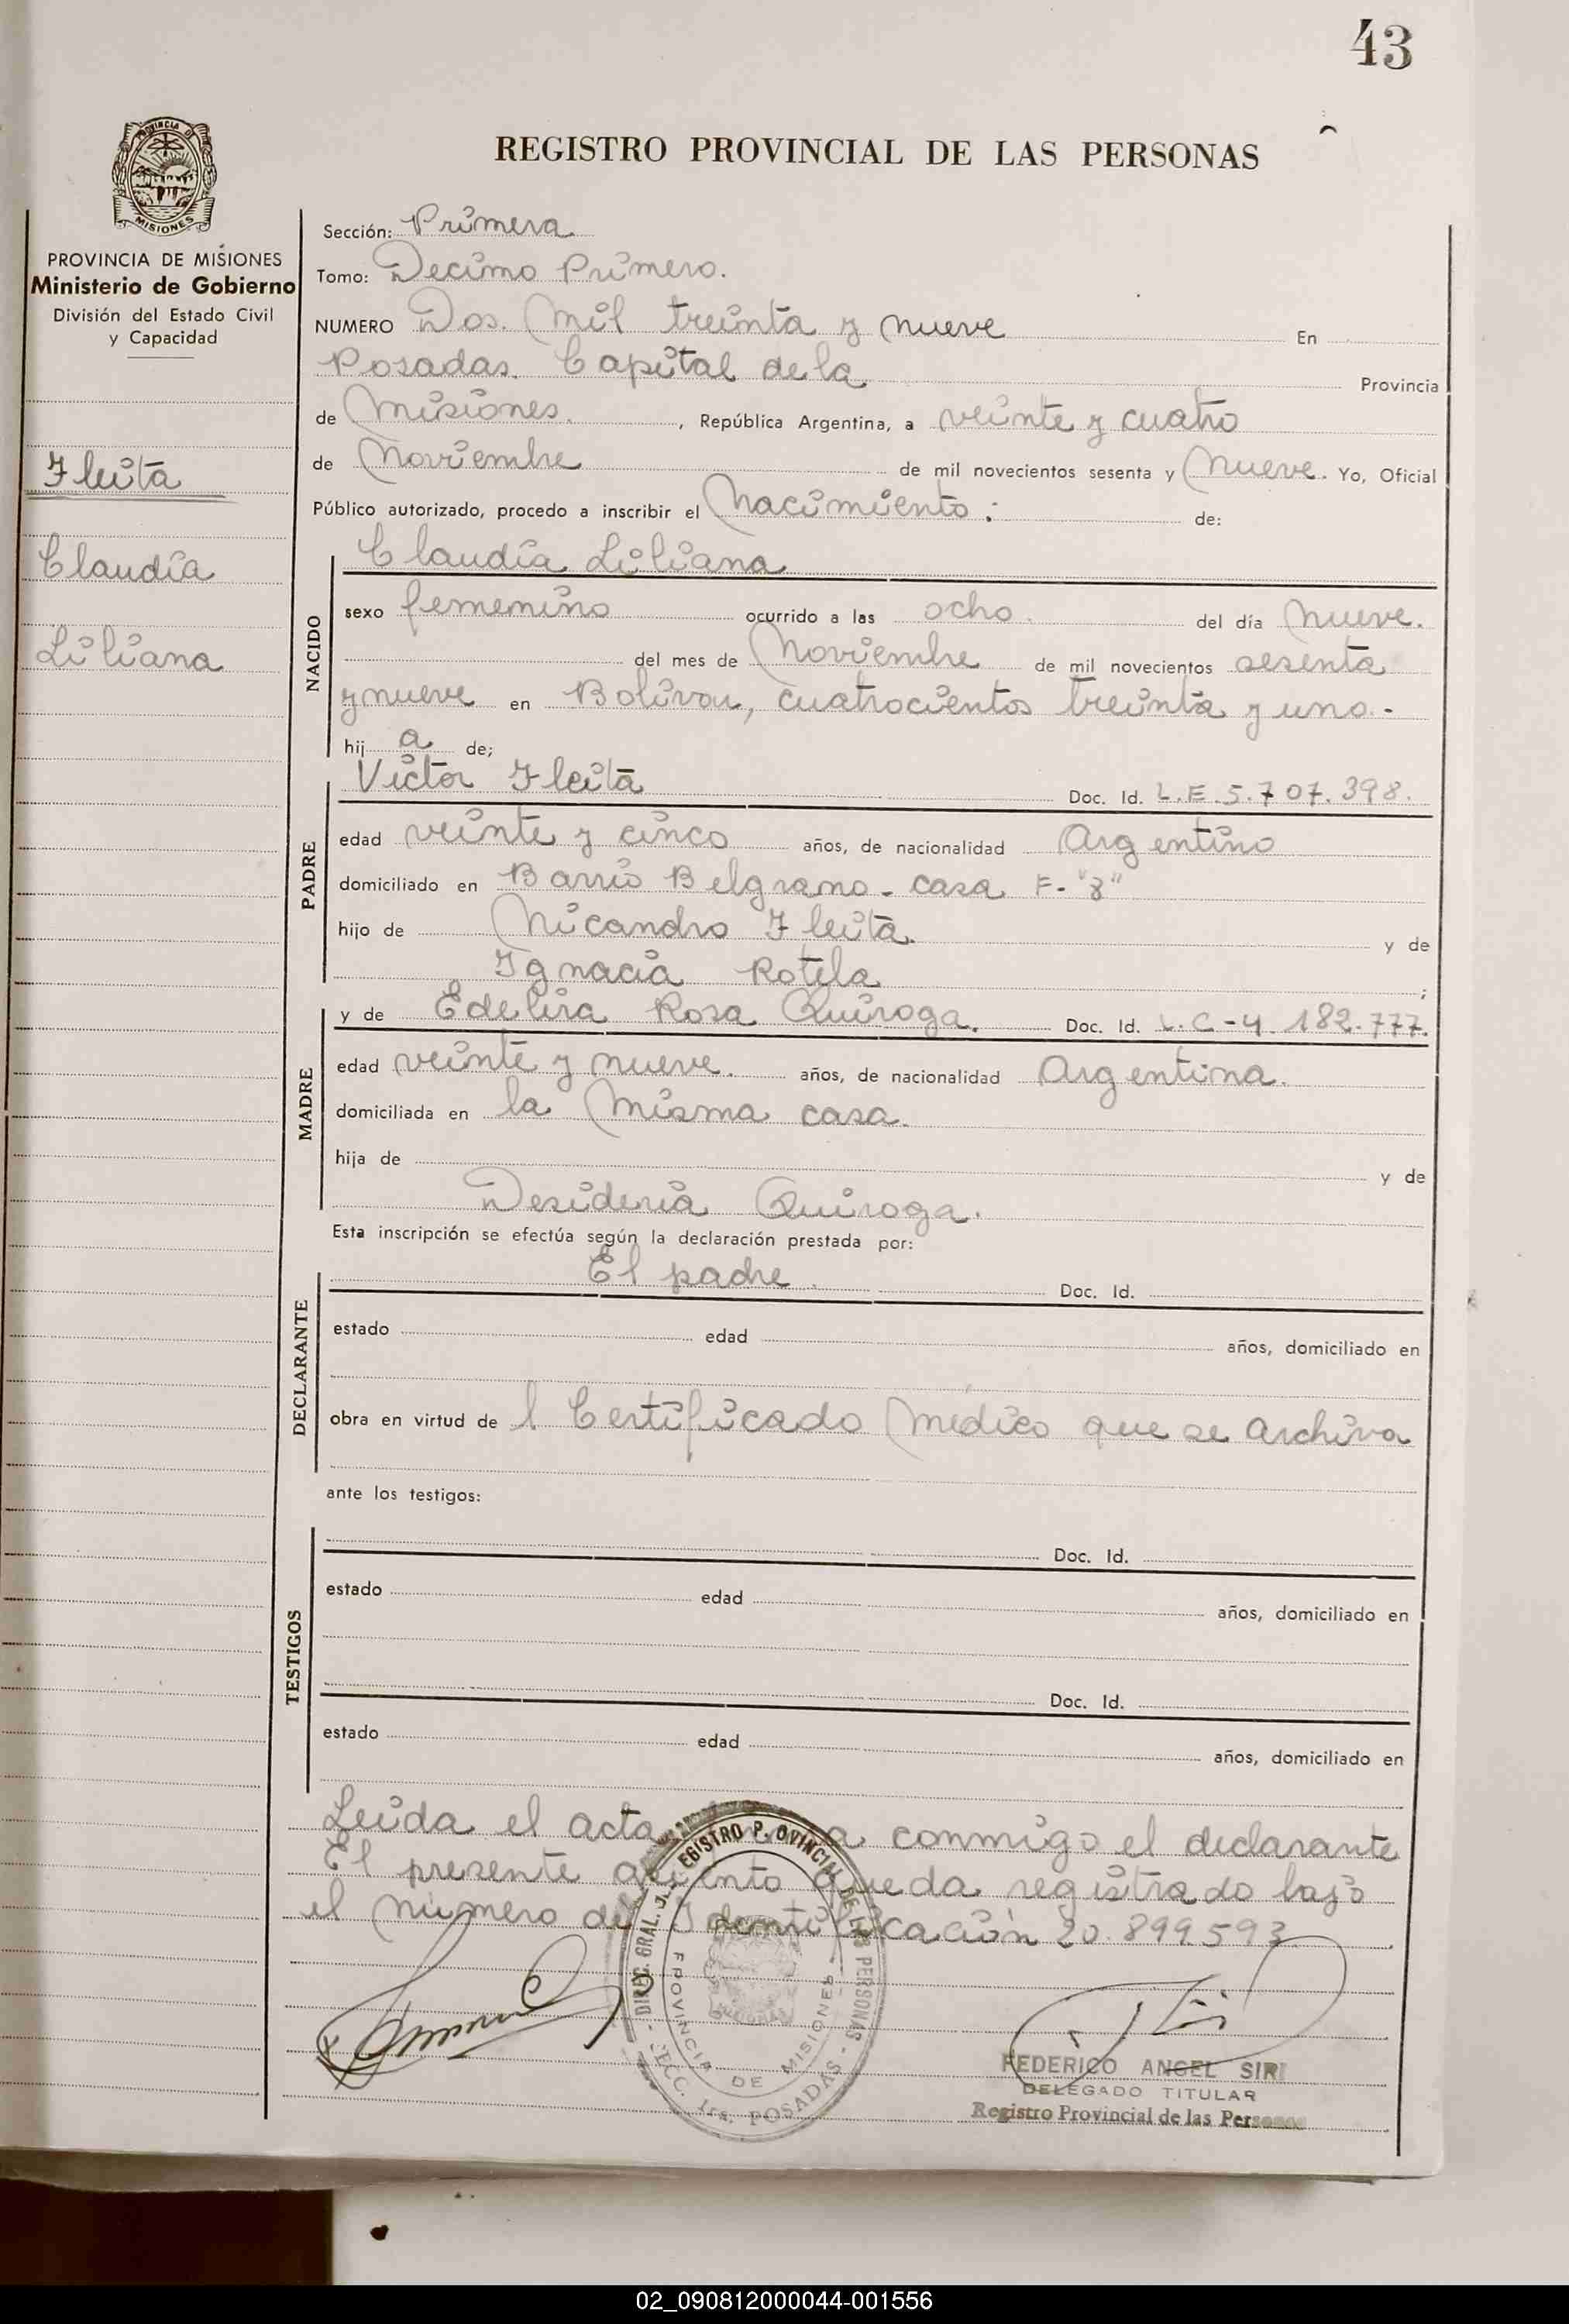 43
REGISTRO PROVINCIAL DE LAS PERSONAS
PROVINCIA DE MISIONES
MISIONES
PROVINCIA DE MISIONES
Ministerio de Gobierno
División del Estado Civil
y Capacidad
Fleita
Claudia
Liliana
Sección: Primera
Tomo: Decimo Primero.
NUMERO Dos. Mil treinta y nueve En
Posadas. Capital de la Provincia
de Misiones. , República Argentina, a veinte y cuatro
de Noviembre de mil novecientos sesenta y Nueve. Yo, Oficial
Público autorizado, procedo a inscribir el Nacimiento: de:
NACIDO
Claudia Liliana
sexo femenino ocurrido a las ocho. del día Nueve.
del mes de Noviembre de mil novecientos sesenta
y nueve en Bolívar, cuatrocientos treinta y uno.-
hij a de;
PADRE
Victor Fleita Doc. Id. L.E.5.707.398.
edad veinte y cinco años, de nacionalidad Argentino
domiciliado en Barrio Belgrano - casa F-"8"
hijo de Nicandro Fleita. y de
Ignacia Rotela ;
MADRE
y de Edelira Rosa Quiroga. Doc. Id. L.C-4.182.777.
edad veinte y nueve. años, de nacionalidad Argentina.
domiciliada en la misma casa.
hija de y de
Desideria Quiroga.
Esta inscripción se efectúa según la declaración prestada por:
DECLARANTE
El padre. Doc. Id.
estado edad años, domiciliado en
obra en virtud de l Certificado Médico que se archiva
ante los testigos:
TESTIGOS
Doc. Id.
estado edad años, domiciliado en
Doc. Id.
estado edad años, domiciliado en
Leida el acta conmigo el declarante
El presente asiento queda registrado bajo
el número de Identificación 20.899.593.
DIREC. GRAL. EGISTRO P. OVINCIAL DE LAS PERSONAS
PROVINCIA DE MISIONES
SECC. 1ra. POSADAS
FEDERICO ANGEL SIRI
DELEGADO TITULAR
Registro Provincial de las Personas
02_090812000044-001556